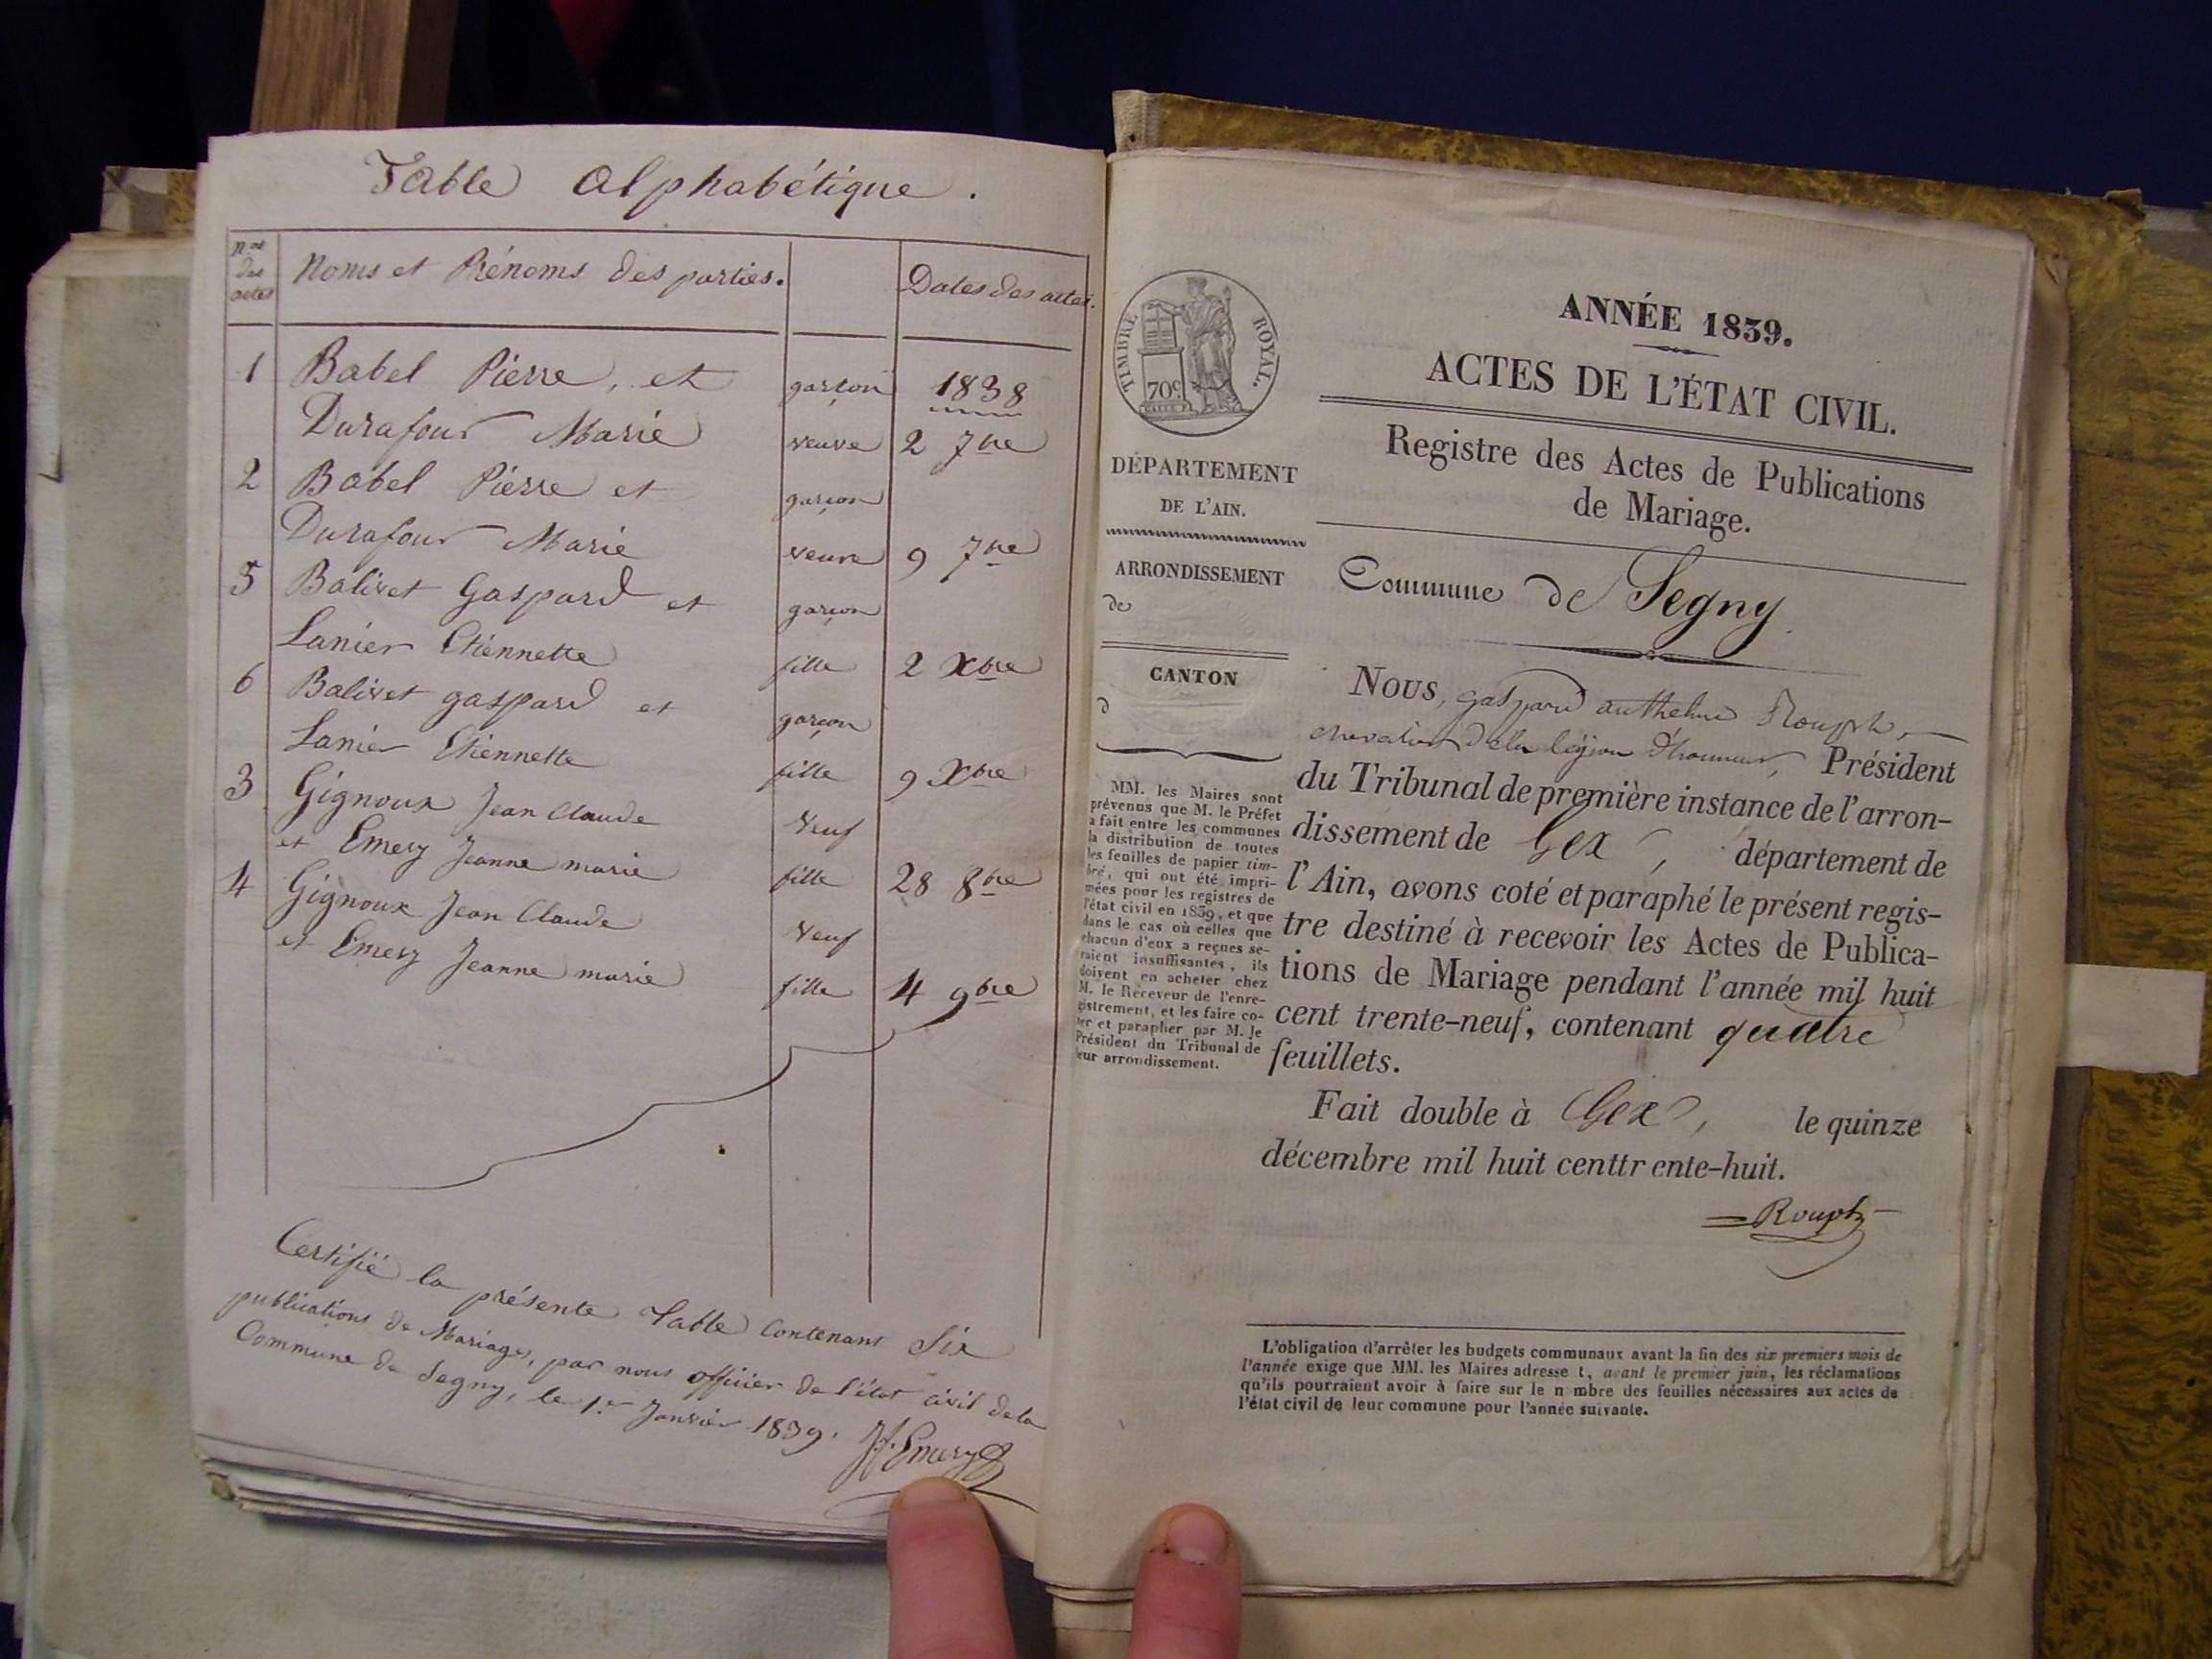 Table Alphabétique.
Nos des actes
Noms et Prénoms des parties.
Dates des actes.
1 Babel Pierre, et garçon 1838
Durafour Marie veuve 2 7bre
2 Babel Pierre et garçon
Durafour Marie veuve 9 7bre
5 Balivet Gaspard et garçon
Lanier Etiennette fille 2 Xbre
6 Balivet gaspard et garçon
Lanier Etiennette fille 9 Xbre
3 Gignoux Jean Claude Veuf
et Emery Jeanne marie fille 28 8bre
4 Gignoux Jean Claude Veuf
et Emery Jeanne marie fille 4 9bre
Certifié la présente Table contenant Six
publications de Mariages, par nous officier de l'état civil de la
Commune de Segny, le 1er Janvier 1839.
J. Emery
TIMBRE ROYAL.
70c.
DÉPARTEMENT
DE L'AIN.
ARRONDISSEMENT
de
CANTON
d
MM. les Maires sont
prévenus que M. le Préfet
a fait entre les communes
la distribution de toutes
les feuilles de papier tim-
bré, qui ont été impri-
mées pour les registres de
l'état civil en 1839, et que
dans le cas où celles que
chacun d'eux a reçues se-
raient insuffisantes, ils
doivent en acheter chez
M. le Receveur de l'enre-
gistrement, et les faire co-
ter et parapher par M. le
Président du Tribunal de
leur arrondissement.
ANNÉE 1839.
ACTES DE L'ÉTAT CIVIL.
Registre des Actes de Publications
de Mariage.
Commune de Segny.
NOUS, gaspard anthelme Rouph,
chevalier de la légion d'honneur, Président
du Tribunal de première instance de l'arron-
dissement de Gex, département de
l'Ain, avons coté et paraphé le présent regis-
tre destiné à recevoir les Actes de Publica-
tions de Mariage pendant l'année mil huit
cent trente-neuf, contenant quatre
feuillets.
Fait double à Gex, le quinze
décembre mil huit centtr ente-huit.
Rouph
L'obligation d'arrêter les budgets communaux avant la fin des six premiers mois de
l'année exige que MM. les Maires adresse t, avant le premier juin, les réclamations
qu'ils pourraient avoir à faire sur le n mbre des feuilles nécessaires aux actes de
l'état civil de leur commune pour l'année suivante.